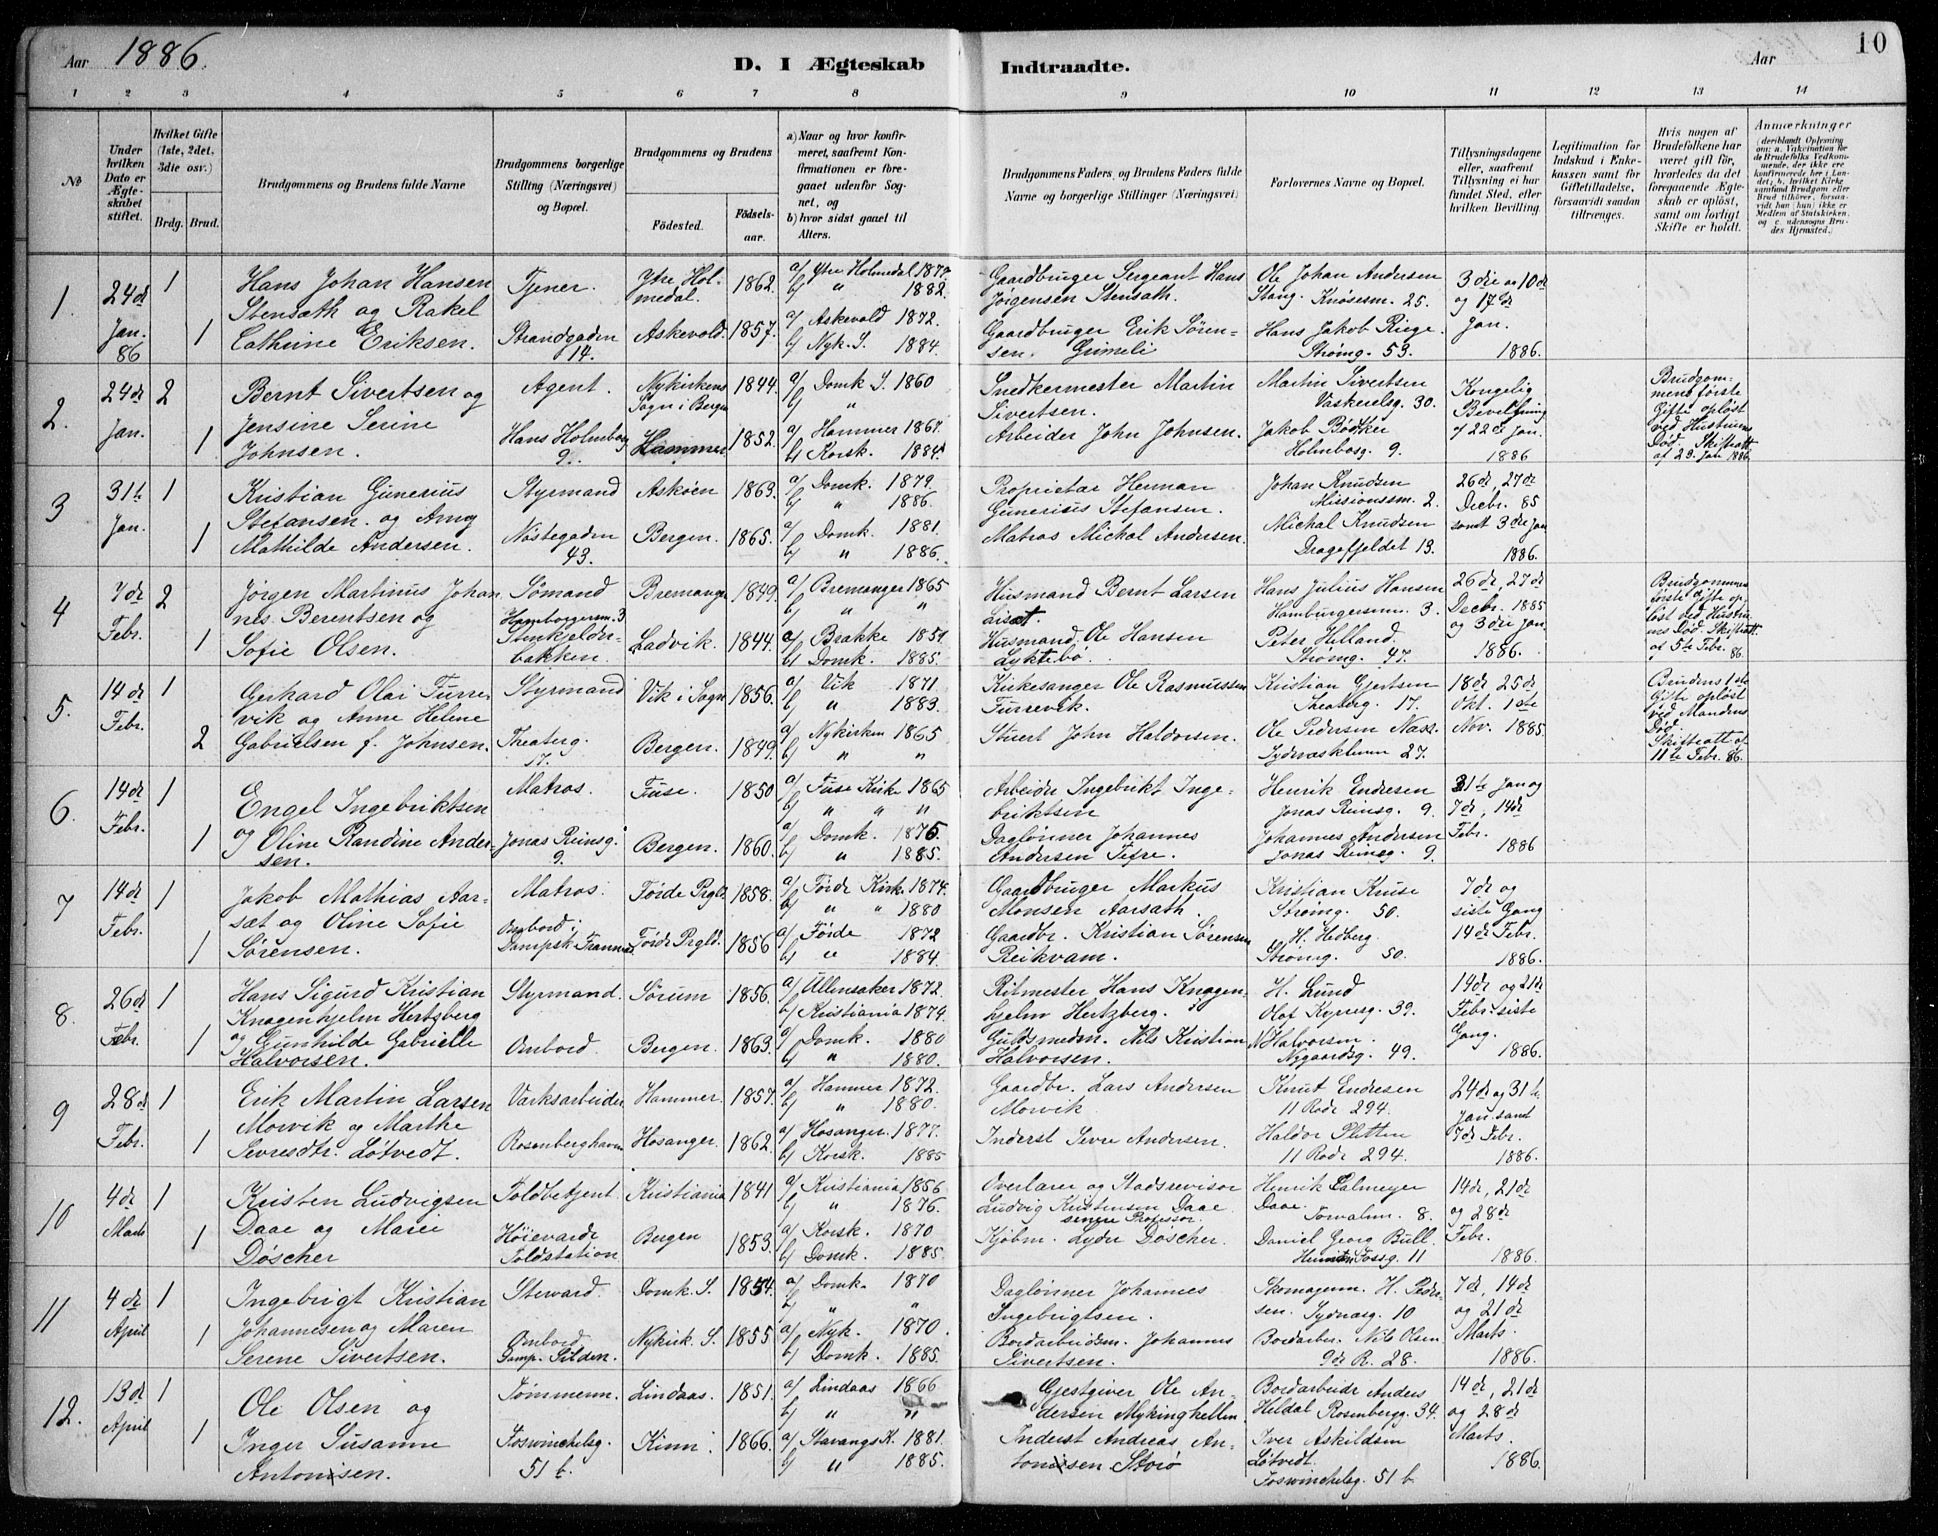 Aar 1886.
D. I Ægteskab Indtraadte.
Aar
10
1 2 3 4 5 6 7 8 9 10 11 12 13 14
No
Under hvilken Dato er Ægteskabet stiftet.
Hvilket Gifte (1ste, 2det, 3die osv.)
Brdg. Brud.
Brudgommens og Brudens fulde Navne
Brudgommens borgerlige Stilling (Næringsvei) og Bopæl.
Brudgommens og Brudens
Fødested.
Fødselsaar.
a) Naar og hvor konfirmeret, saafremt Konfirmationen er foregaaet udenfor Sognet, og
b) hvor sidst gaaet til Alters.
Brudgommens Faders, og Brudens Faders fulde Navne og borgerlige Stillinger (Næringsvei)
Forlovernes Navne og Bopæl.
Tillysningsdagene eller, saafremt Tillysning ei har fundet Sted, efter hvilken Bevilling
Legitimation for Indskud i Enkekassen samt for Giftetilladelse, forsaavidt saadan tiltrænges.
Hvis nogen af Brudefolkene har været gift før, hvorledes da det foregaaende Ægteskab er opløst, samt om lovligt Skifte er holdt.
Anmærkninger
1 24de Jan. 86
1 1
Hans Johan Hansen
Stensath og Rakel
Cathrine Eriksen.
Tjener.
Strandgaden
14.
Ytre Holmedal. 1862.
Askevold. 1857.
a/ Ytre Holmedal 1877
b/ " 1882.
a/ Askevold 1872.
b/ Nyk. S. 1884.
Gaardbruger Sergeant Hans
Jørgensen Stensath.
Gaardbruger Erik Sørensen. Grimeli
Ole Johan Andersen
Stang. Knøsesm. 25.
Hans Jakob Riege.
Strømg. 53.
3die og 10de
og 17de
Jan.
1886.
2. 24de Jan.
2 1
Bernt Sivertsen og
Jensine Serine
Johnsen.
Agent.
Hans Holmbog.
9.
Nykirkens
Sogn i Bergen 1844
Hammer. 1852.
a/ Domk S. 1860
b/ "
a/ Hammer 1867.
b/ Korsk. 1884.
Snedkermester Martin
Sivertsen.
Arbeider John Johnsen.
Martin Sivertsen
Vaskerelsg. 30.
Jakob Bødker
Holmbog. 9.
Kongelig
Bevilgning
af 22de Jan.
1886
Brudgommens første
Gifte opløst
ved Hustruens
Død. Skifteatt.
af 23. Jan 1886.
3 31te Jan.
1 1
Kristian Gunerius
Stefansen. og Amy
Mathilde Andersen.
Styrmand
Nøstegaden
43.
Askøen 1863.
Bergen. 1865.
a/ Domk. 1879.
b/ " 1886.
a/ Domk. 1881.
b/ " 1886.
Proprietær Herman
Gunerius Stefansen.
Matros Michal Andersen.
Johan Knudsen
Missionssm. 2.
Michal Knudsen
Dragefjeldet 13.
26de, 27de
Decbr. 85
samt 3die Jan
1886.
4 7de Febr.
2 1
Jørgen Martinus Johannes Berentsen og
Sofie Olsen.
Sømand
Hamborgersm. 3
Stenkjelderbakken.
Bremanger 1849.
Ladvik. 1844.
a/ Bremanger 1865
b/ " "
a/ Brække 1859.
b/ Domk. 1885.
Husmand Bernt Larsen
Liset.
Husmand, Ole Hansen
Lyktebø.
Hans Julius Hansen
Hamburgersm. 3.
Peter Helland.
Strømg. 47.
26de, 27de
Decbr. 1885
og 3die Jan.
1886.
Brudgommens
første Gifte opløst ved Hustruens Død. Skifteatt.
af 5te Febr. 86.
5. 14de Febr.
1 2
Gerhard Olai Furrevik og Anne Helene
Gabrielsen f. Johnsen.
Styrmand
Theaterg.
17.
Vik i Sogn 1856.
Bergen. 1849.
a/ Vik 1871
b/ " 1883.
a/ Nykirken 1865
b/ " "
Kirkesanger Ole Rasmussen
Furrevik.
Stuert John Haldorsen.
Kristian Gjertsen
Theaterg. 17.
Ole Pedersen Næss.
27.
18de, 25de
Okt. 1ste
Nov. 1885.
Brudens 1ste
Gifte opløst
ved Mandens
Død
Skifteatt af
11te Febr. 86.
6. 14de Febr.
1 1
Engel Ingebriktsen
og Oline Randine Andersen.
Matros.
Jonas Reinsg.
9.
Fuse. 1850
Bergen. 1860.
a/ Fuse Kirk 1865
b/ " " "
a/ Domk. 1875.
b/ " 1885.
Arbeider Ingebrikt Ingebriktsen
Daglønner Johannes
Andersen Tefre.
Henrik Endresen
Jonas Reinsg. 9.
Johannes Andersen
Jonas Reinsg. 9.
31te Jan og
7de, 14de
Febr.
1886
7 14de Febr.
1 1
Jakob Mathias Aarsæt og Oline Sofie
Sørensen.
Matros.
Ombord i
Dampsk.
Førde Prgld. 1858.
Førde Prgld. 1856
a/ Førde Kirk. 1874.
b/ " " 1880
a/ Førde 1872
b/ " 1884.
Gaardbruger Markus
Monsen Aarsath.
Gaardbr. Kristian Sørensen
Reikvam.
Kristian Kruse
Strømg. 50.
H. Hedberg.
Strømg. 50.
7de og
siste Gang
14de Febr.
1886.
8. 26de Febr.
1 1
Hans Sigurd Kristian
Knagenhjelm Hertzberg
og Gunhilde Gabrielle
Halvorsen.
Styrmand.
Ombord.
Sørum 1856.
Bergen. 1863.
a/ Ullensaker 1872.
b/ Kristiania 1879.
a/ Domk. 1880
b/ " 1880.
Ritmester Hans Knagenhjelm Hertzberg.
Guldsmedm. Nils Kristian
Halvorsen.
H. Lund
Olaf Kyrresg. 39.
N Halvorsen.
Nygaardsg. 49.
14de og 21de
Febr. siste
Gang.
1886.
9 28de Febr.
1 1
Erik Martin Larsen
Morvik og Marthe
Sevresdtr. Løtvedt.
Værksarbeider
Rosenberghavn
Hammer. 1857.
Hosanger. 1862.
a/ Hammer 1872.
b/ " 1880.
a/ Hosanger. 1877.
b/ Korsk. 1885
Gaardbr. Lars Andersen
Morvik.
Inderst Sevre Andersen.
Knut Endresen
11 Rode 294.
Haldor Sletten
11 Rode 294.
24de og 31te
Jan. samt
7de Febr.
1886.
10 4de Marts
1 1
Kristen Ludvigsen
Daae og Marie
Døscher
Toldbetjent.
Høievarde
Toldstation.
Kristiania 1841
Bergen 1853.
a/ Kristiania 1856
b/ " 1876.
a/ Korsk. 1870
b/ Domk. 1885.
Overlærer og Stadsrevisor
Ludvig Kristensen Daae
senere Professor.
Kjøbm. Lyder Døscher.
Henrik Lalmeyer
Daae. Torvalm. 8.
Daniel Georg Bull.
Fossg. 11
14de, 21de
og 28de
Febr.
1886.
11 4de April
1 1
Ingebrigt Kristian
Johannesen og Maren
Serene Sivertsen.
Steward
Ombord
Damp. Silden.
Domk. S. 1854.
Nykirk. S. 1855
a/ Domk. 1870
b/ " "
a/ Nyk. 1870.
b/ Domk. 1885.
Daglønner Johannes
Ingebrigtsen.
Bordarbeidsm. Johannes
Sivertsen.
Skomagerm. H. Pedersen. Sydnæsg. 10
Bordarber. Nils Olsen
9de R. 28.
7de, 14de
og 21de
Marts.
1886.
12. 13de April
1 1
Ole Olsen og
Inger Susanne
Antonisen.
Tømmerm.
Foswinckelsg.
51 b.
Lindaas. 1851.
Kinn 1866.
a/ Lindaas 1866
b/ " "
a/ Stavangs K. 1881.
b/ " 1885.
Gjestgiver Ole Andersen Mykinghellen.
Inderst Andreas Antonisen Storø
Bordarbeider Anders
Heldal Rosenbergg. 34.
Iver Askildsen
Løtvedt.
Foswinckelsg. 51 b
14de, 21de
og 28de
Marts.
1886.